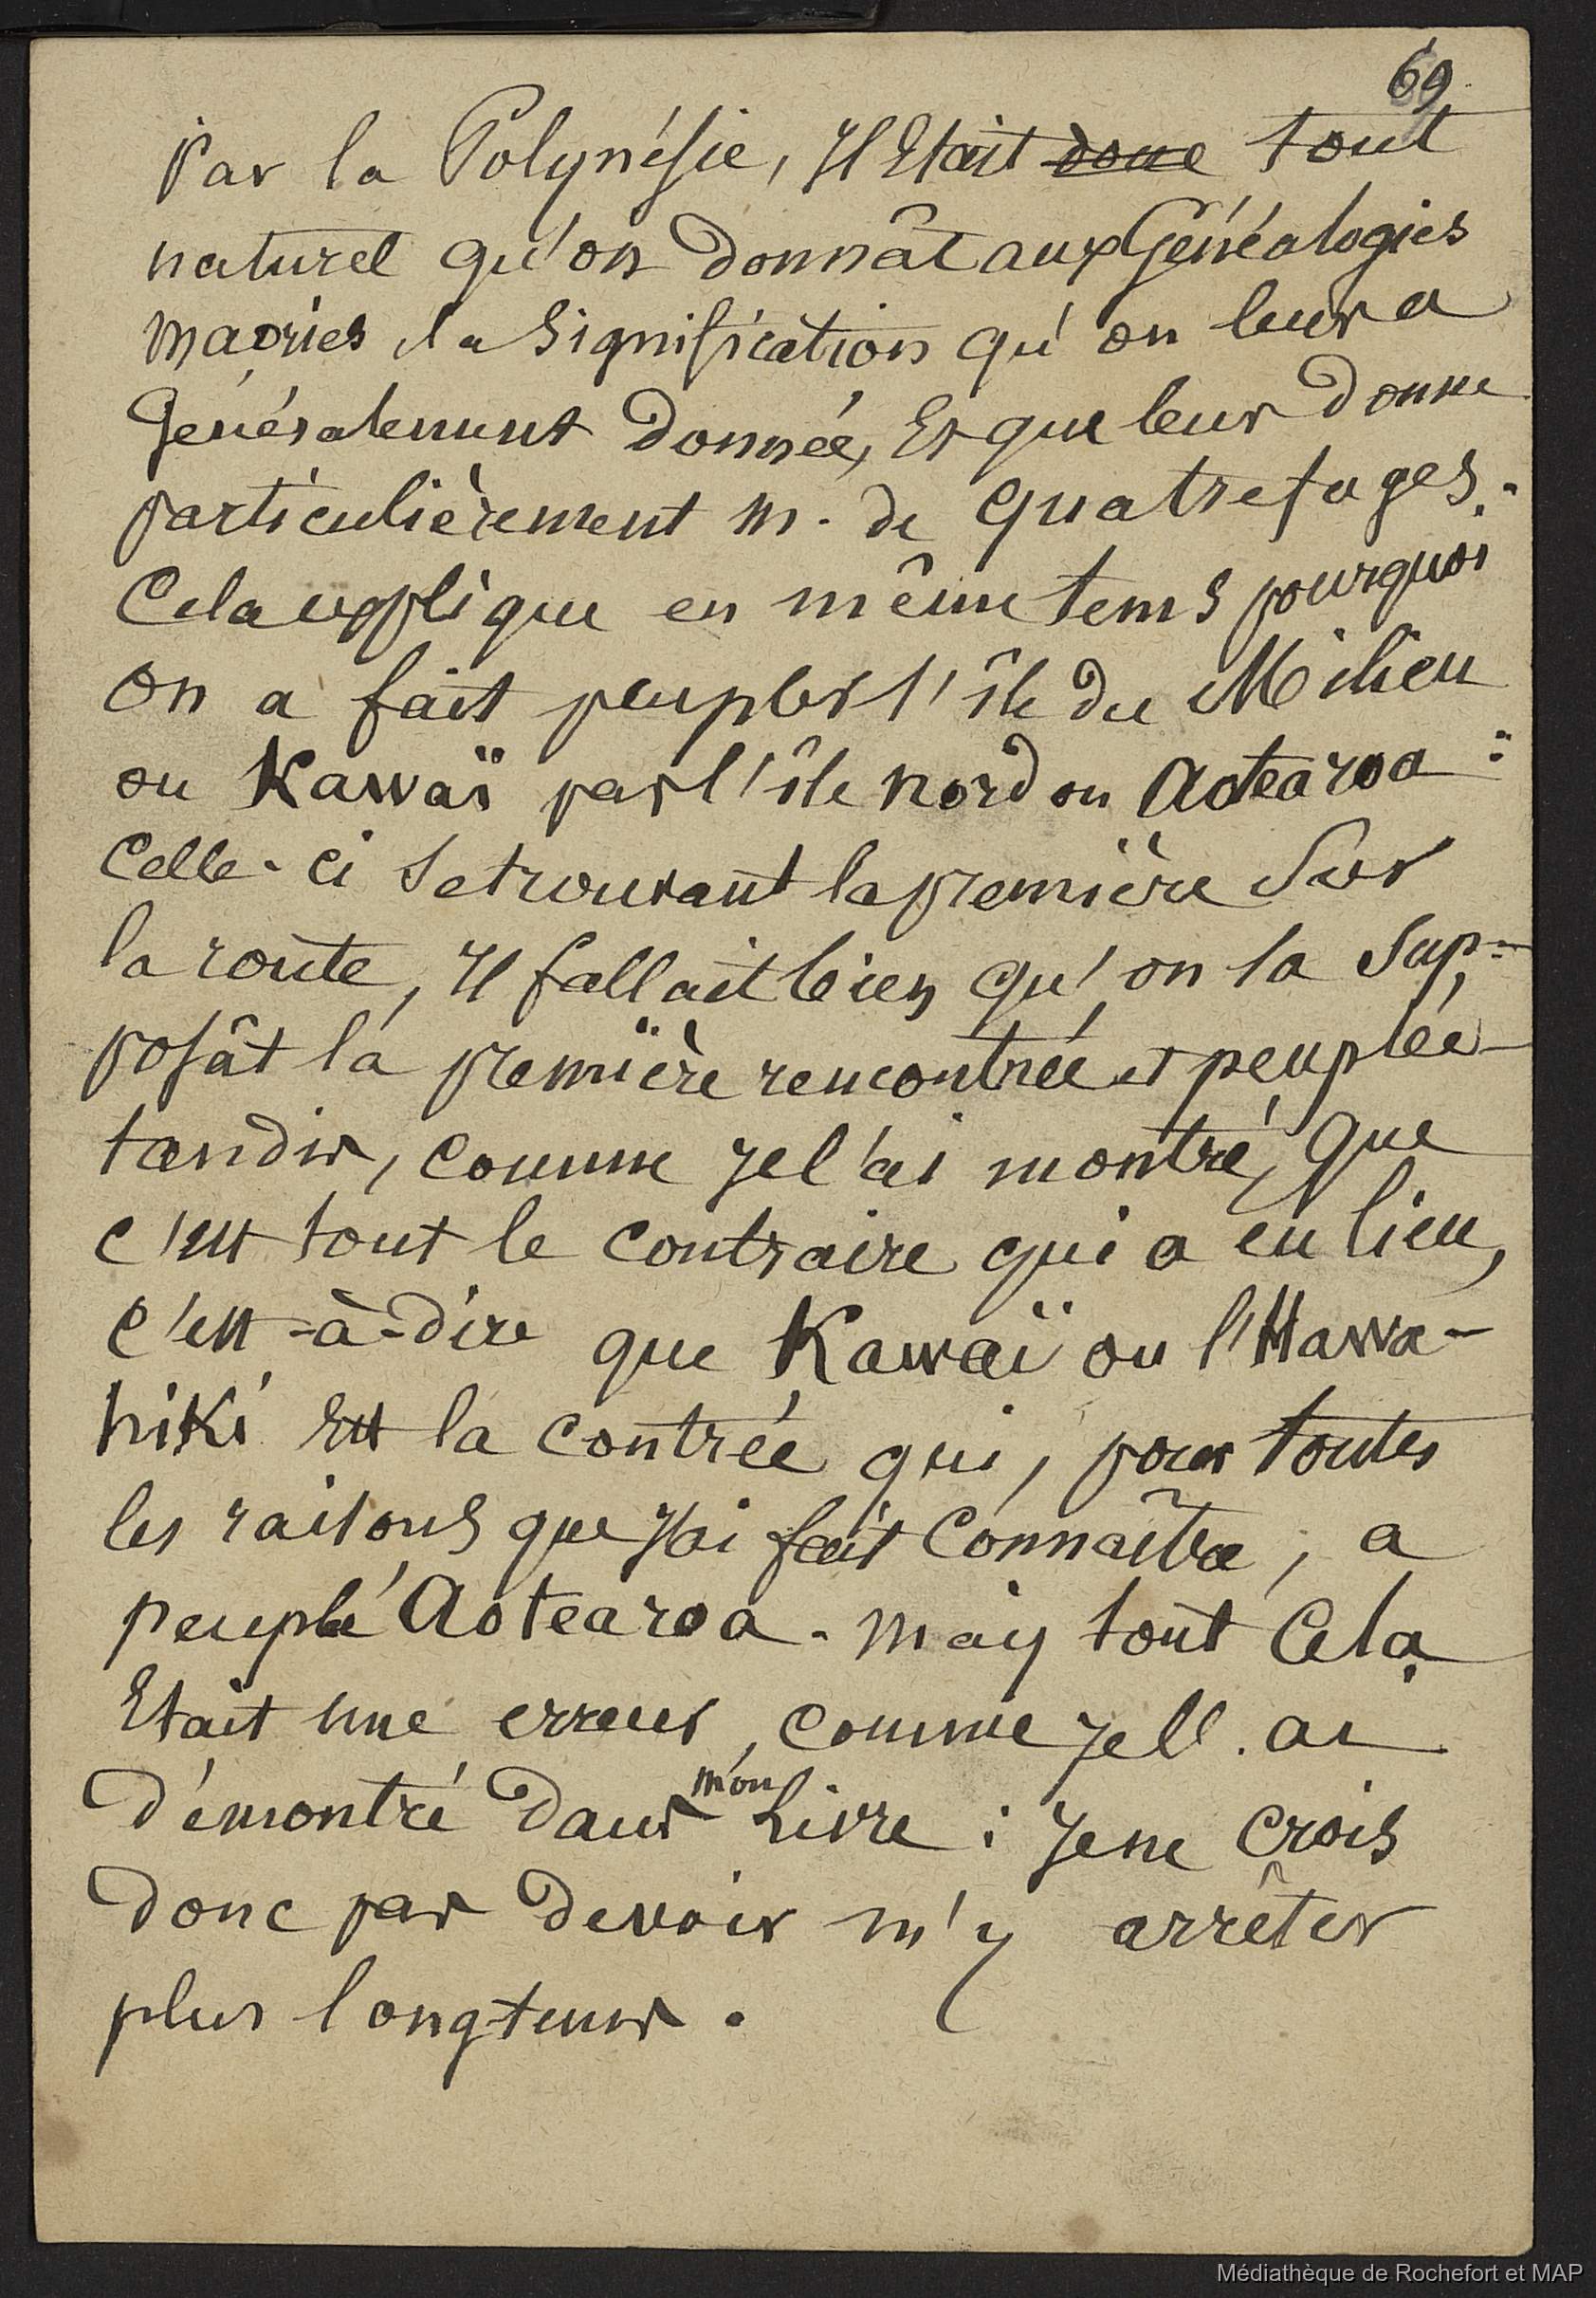 69
par la Polynésie, Il Etait donc tout
naturel qu'on Donnât aux Généalogies
maories la Signification qu'on leur a
Généralement Donnée, Et que leur Donne
particulièrement M. de Quatrefages.
Cela explique en même tems pourquoi
on a fait peupler l'île du Milieu
ou Kawaï par l'île nord ou Aotearoa :
Celle-ci se trouvant la première Sur
la route, Il fallait bien qu'on la Sup-
posât la première rencontrée et peuplée
tandis, comme je l'ai montré, que
c'est tout le contraire qui a eu lieu,
c'est-à-dire que Kawaï ou l'Hawa-
hiki est la contrée qui, pour toutes
les raisons que j'ai fait Connaître, a
peuplé Aotearoa. Mais tout Cela
Etait une erreur, comme je l'ai
Démontré Dans mon Livre : Je ne Crois
Donc pas Devoir m'y arrêter
plus longtems.
Médiathèque de Rochefort et MAP